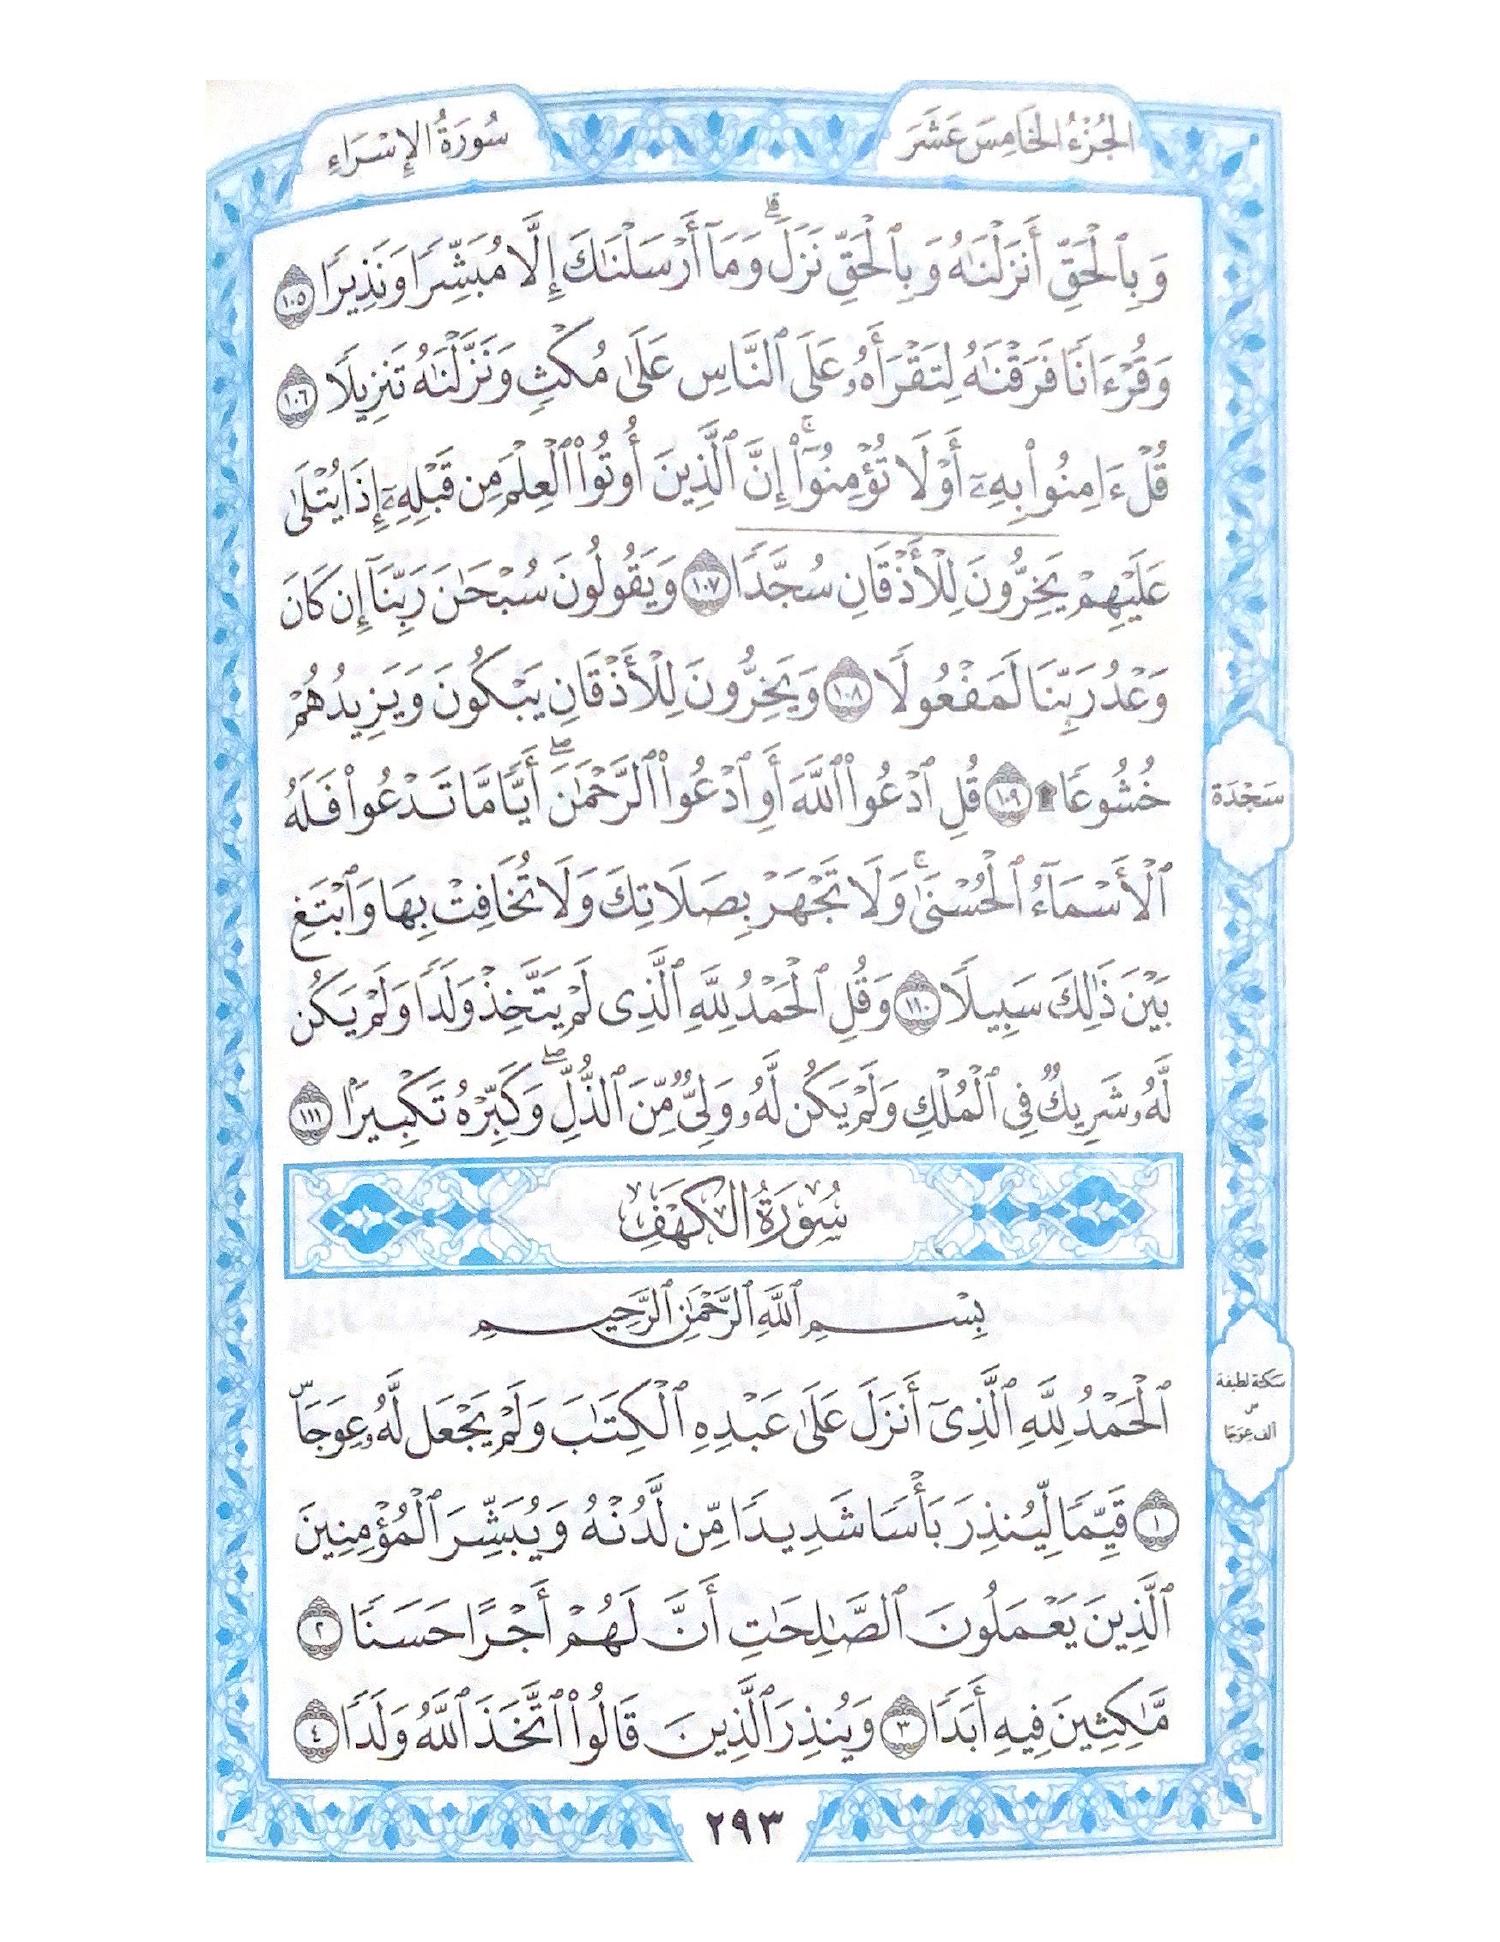 الجُزْءُ الخَامِسَ عَشَرَ
سُورَةُ الإِسْرَاءِ
وَبِٱلْحَقِّ أَنزَلْنَٰهُ وَبِٱلْحَقِّ نَزَلَ ۗ وَمَآ أَرْسَلْنَٰكَ إِلَّا مُبَشِّرًا وَنَذِيرًا ١٠٥
وَقُرْءَانًا فَرَقْنَٰهُ لِتَقْرَأَهُۥ عَلَى ٱلنَّاسِ عَلَىٰ مُكْثٍ وَنَزَّلْنَٰهُ تَنزِيلًا ١٠٦
قُلْ ءَامِنُوا۟ بِهِۦٓ أَوْ لَا تُؤْمِنُوٓا۟ ۚ إِنَّ ٱلَّذِينَ أُوتُوا۟ ٱلْعِلْمَ مِن قَبْلِهِۦٓ إِذَا يُتْلَىٰ
عَلَيْهِمْ يَخِرُّونَ لِلْأَذْقَانِ سُجَّدًا ١٠٧ وَيَقُولُونَ سُبْحَٰنَ رَبِّنَآ إِن كَانَ
وَعْدُ رَبِّنَا لَمَفْعُولًا ١٠٨ وَيَخِرُّونَ لِلْأَذْقَانِ يَبْكُونَ وَيَزِيدُهُمْ
خُشُوعًا ۩ ١٠٩ قُلِ ٱدْعُوا۟ ٱللَّهَ أَوِ ٱدْعُوا۟ ٱلرَّحْمَٰنَ ۖ أَيًّا مَّا تَدْعُوا۟ فَلَهُ
سَجْدَة
ٱلْأَسْمَآءُ ٱلْحُسْنَىٰ ۚ وَلَا تَجْهَرْ بِصَلَاتِكَ وَلَا تُخَافِتْ بِهَا وَٱبْتَغِ
بَيْنَ ذَٰلِكَ سَبِيلًا ١١٠ وَقُلِ ٱلْحَمْدُ لِلَّهِ ٱلَّذِى لَمْ يَتَّخِذْ وَلَدًا وَلَمْ يَكُن
لَّهُۥ شَرِيكٌ فِى ٱلْمُلْكِ وَلَمْ يَكُن لَّهُۥ وَلِىٌّ مِّنَ ٱلذُّلِّ ۖ وَكَبِّرْهُ تَكْبِيرًۢا ١١١
سُورَةُ الكَهْفِ
بِسْمِ ٱللَّهِ ٱلرَّحْمَٰنِ ٱلرَّحِيمِ
ٱلْحَمْدُ لِلَّهِ ٱلَّذِىٓ أَنزَلَ عَلَىٰ عَبْدِهِ ٱلْكِتَٰبَ وَلَمْ يَجْعَل لَّهُۥ عِوَجَاۜ
سكتة لطيفة
س
ألف عِوَجَا
١ قَيِّمًا لِّيُنذِرَ بَأْسًا شَدِيدًا مِّن لَّدُنْهُ وَيُبَشِّرَ ٱلْمُؤْمِنِينَ
ٱلَّذِينَ يَعْمَلُونَ ٱلصَّٰلِحَٰتِ أَنَّ لَهُمْ أَجْرًا حَسَنًا ٢
مَّٰكِثِينَ فِيهِ أَبَدًا ٣ وَيُنذِرَ ٱلَّذِينَ قَالُوا۟ ٱتَّخَذَ ٱللَّهُ وَلَدًا ٤
٢٩٣